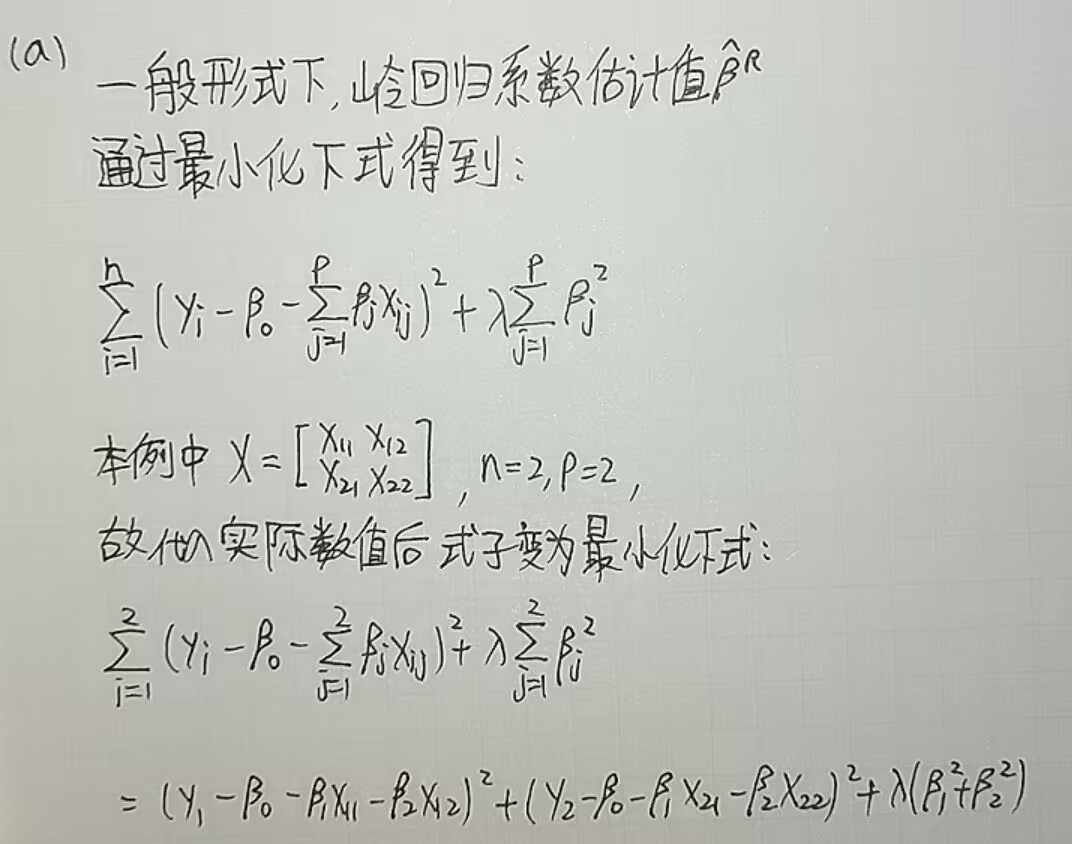 (a)
一般形式下,岭回归系数估计值 β̂ᴿ
通过最小化下式得到:
∑_{i=1}^{n} (y_i - β_0 - ∑_{j=1}^{p} β_j x_{ij})^2 + λ∑_{j=1}^{p} β_j^2
本例中 X = [x_{11} x_{12}; x_{21} x_{22}], n=2, p=2,
故代入实际数值后式子变为最小化下式:
∑_{i=1}^{2} (y_i - β_0 - ∑_{j=1}^{2} β_j x_{ij})^2 + λ∑_{j=1}^{2} β_j^2
= (y_1 - β_0 - β_1 x_{11} - β_2 x_{12})^2 + (y_2 - β_0 - β_1 x_{21} - β_2 x_{22})^2 + λ(β_1^2 + β_2^2)